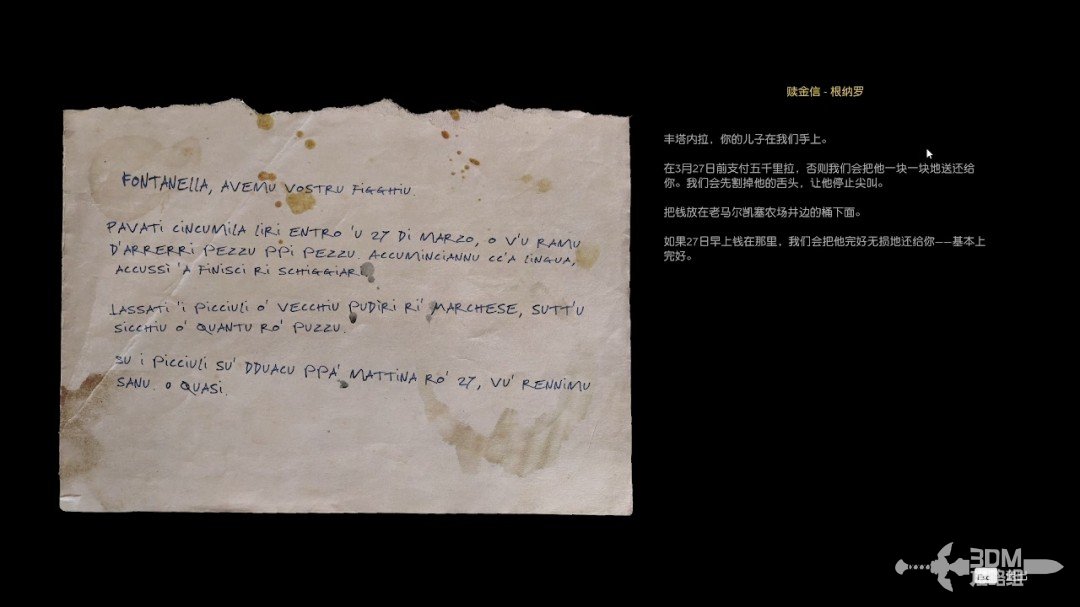 FONTANELLA, AVEMU VOSTRU FIGGHIU.
PAVATI CINCUMILA LIRI ENTRO 'U 27 DI MARZO, O V'U RAMU
D'ARRERRI PEZZU PPI PEZZU. ACCUMINCIANNU CC'A LINGUA,
ACCUSSÌ 'A FINISCI RI SCHIGGIARI
LASSATI 'I PICCIULI O' VECCHIU PUDIRI RI' MARCHESE, SUTT'U
SICCHIU O' QUANTU RO' PUZZU.
SU I PICCIULI SU' DDUACU PPA' MATTINA RO' 27, VU' RENNIMU
SANU. O QUASI.
赎金信 - 根纳罗
丰塔内拉，你的儿子在我们手上。
在3月27日前支付五千里拉，否则我们会把他一块一块地送还给
你。我们会先割掉他的舌头，让他停止尖叫。
把钱放在老马尔凯塞农场井边的桶下面。
如果27日早上钱在那里，我们会把他完好无损地还给你——基本上
完好。
3DM
Esc